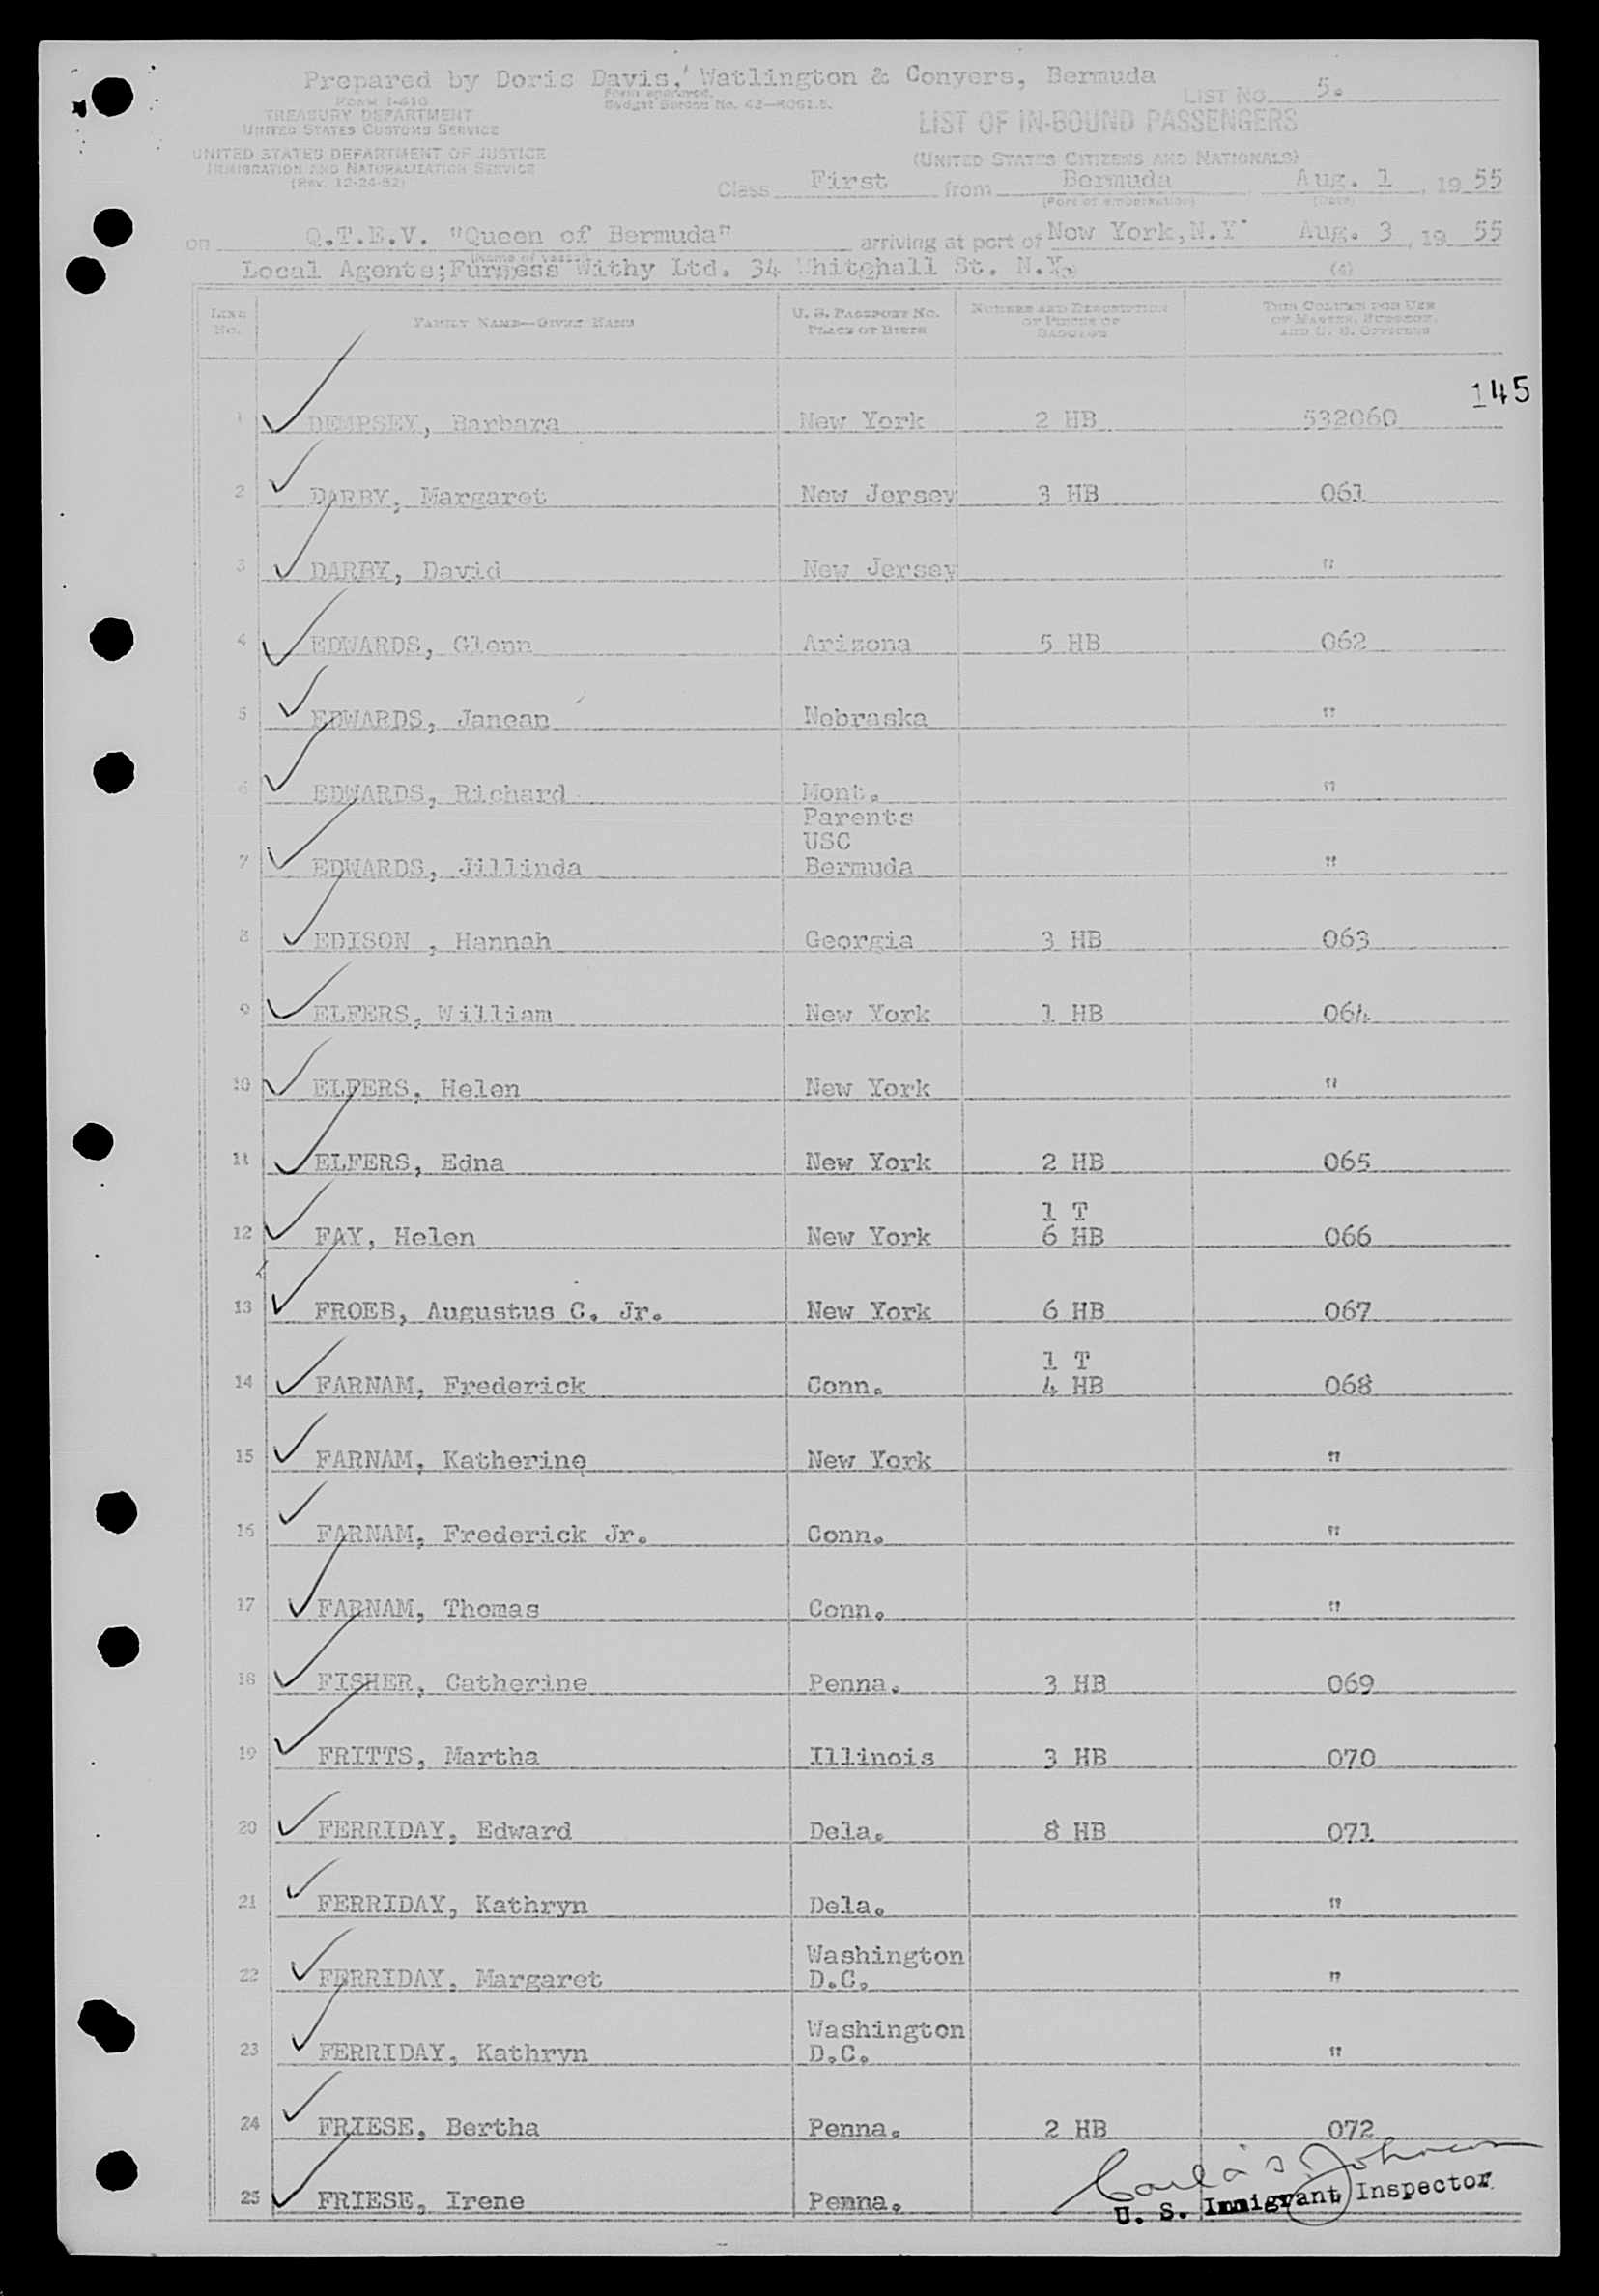 Prepared by Doris Davis, Watlington & Conyers, Bermuda
Form I-410
TREASURY DEPARTMENT
UNITED STATES CUSTOMS SERVICE
UNITED STATES DEPARTMENT OF JUSTICE
IMMIGRATION AND NATURALIZATION SERVICE
(Rev. 12-24-52)
Form approved.
Budget Bureau No. 43—R061.5.
LIST No. 5.
LIST OF IN-BOUND PASSENGERS
(UNITED STATES CITIZENS AND NATIONALS)
Class First from Bermuda Aug. 1, 19 55
(Port of embarkation) (Date)
on Q.T.E.V. "Queen of Bermuda" arriving at port of New York, N.Y. Aug. 3, 19 55
(Name of vessel)
Local Agents;Furness Withy Ltd. 34 Whitehall St. N.Y. (4)
LINE No. FAMILY NAME—GIVEN NAME U. S. PASSPORT NO. PLACE OF BIRTH NUMBER AND DESCRIPTION OF PIECES OF BAGGAGE THIS COLUMN FOR USE OF MASTER, SURGEON, AND U. S. OFFICERS
145
1 DEMPSEY, Barbara New York 2 HB 532060
2 DARBY, Margaret New Jersey 3 HB 061
3 DARBY, David New Jersey "
4 EDWARDS, Glenn Arizona 5 HB 062
5 EDWARDS, Janean Nebraska "
6 EDWARDS, Richard Mont. "
Parents
USC
7 EDWARDS, Jillinda Bermuda "
8 EDISON , Hannah Georgia 3 HB 063
9 ELFERS, William New York 1 HB 064
10 ELFERS, Helen New York "
11 ELFERS, Edna New York 2 HB 065
1 T
12 FAY, Helen New York 6 HB 066
13 FROEB, Augustus C. Jr. New York 6 HB 067
1 T
14 FARNAM, Frederick Conn. 4 HB 068
15 FARNAM, Katherine New York "
16 FARNAM, Frederick Jr. Conn. "
17 FARNAM, Thomas Conn. "
18 FISHER, Catherine Penna. 3 HB 069
19 FRITTS, Martha Illinois 3 HB 070
20 FERRIDAY, Edward Dela. 8 HB 071
21 FERRIDAY, Kathryn Dela. "
Washington
22 FERRIDAY, Margaret D.C. "
Washington
23 FERRIDAY, Kathryn D.C. "
24 FRIESE, Bertha Penna. 2 HB 072
25 FRIESE, Irene Penna.
U. S. Immigrant Inspector